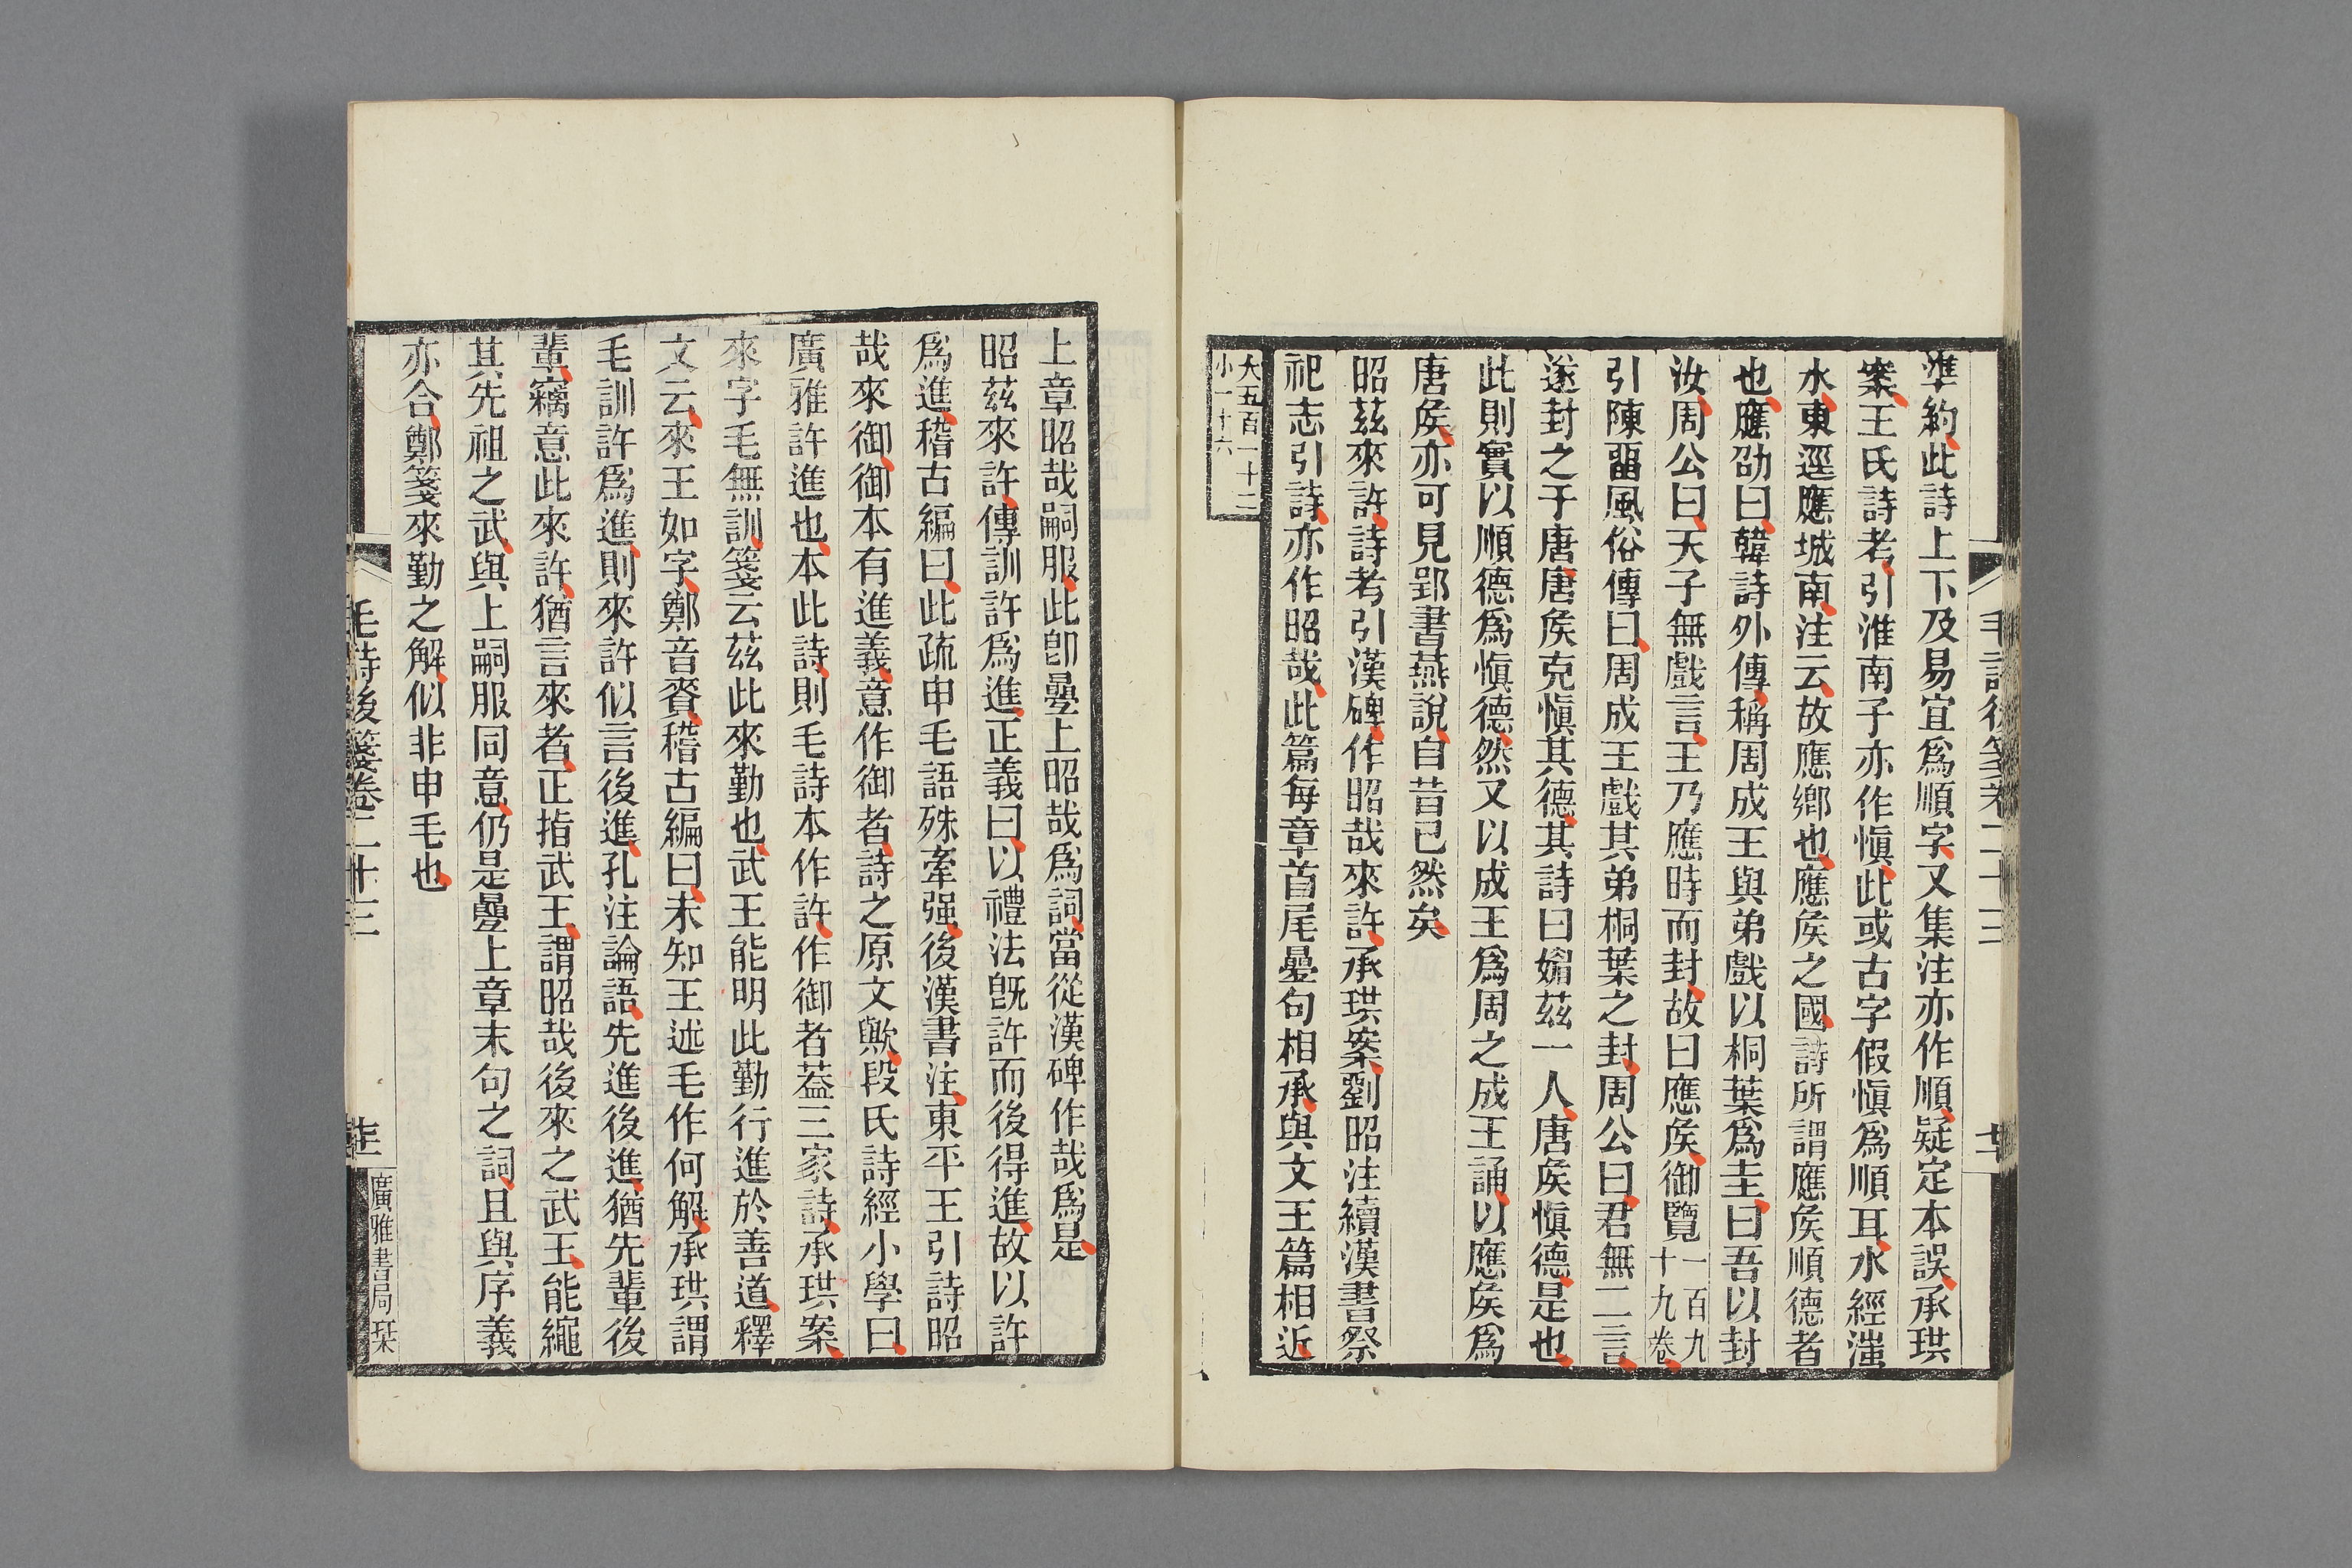 準約此詩上下及易宜爲順字又集注亦作順疑定本誤承珙
案王氏詩考引淮南子亦作愼此或古字假愼爲順耳水經滍
水東逕應城南注云故應鄉也應矦之國詩所謂應矦順德者
也應劭曰韓詩外傳稱周成王與弟戲以桐葉爲圭曰吾以封
汝周公曰天子無戲言王乃應時而封故曰應矦御覽一百九十九卷
引陳畱風俗傳曰周成王戲其弟桐葉之封周公曰君無二言
遂封之于唐唐矦克愼其德其詩曰媚茲一人唐矦愼德是也
此則實以順德爲愼德然又以成王爲周之成王誦以應矦爲
唐矦亦可見郢書燕說自昔已然矣
昭茲來許詩考引漢碑作昭哉來許承珙案劉昭注續漢書祭
祀志引詩亦作昭哉此篇每章首尾曡句相承與文王篇相近
大五百一十二
小一十六
上章昭哉嗣服此卽曡上昭哉爲詞當從漢碑作哉爲是
昭茲來許傳訓許爲進正義曰以禮法旣許而後得進故以許
爲進稽古編曰此疏申毛語殊牽强後漢書注東平王引詩昭
哉來御御本有進義意作御者詩之原文歟段氏詩經小學曰
廣雅許進也本此詩則毛詩本作許作御者葢三家詩承珙案
來字毛無訓箋云茲此來勤也武王能明此勤行進於善道釋
文云來王如字鄭音賚稽古編曰未知王述毛作何解承珙謂
毛訓許爲進則來許似言後進孔注論語先進後進猶先輩後
輩竊意此來許猶言來者正指武王謂昭哉後來之武王能繩
其先祖之武與上嗣服同意仍是曡上章末句之詞且與序義
亦合鄭箋來勤之解似非申毛也
毛詩後箋卷二十三
廣雅書局栞